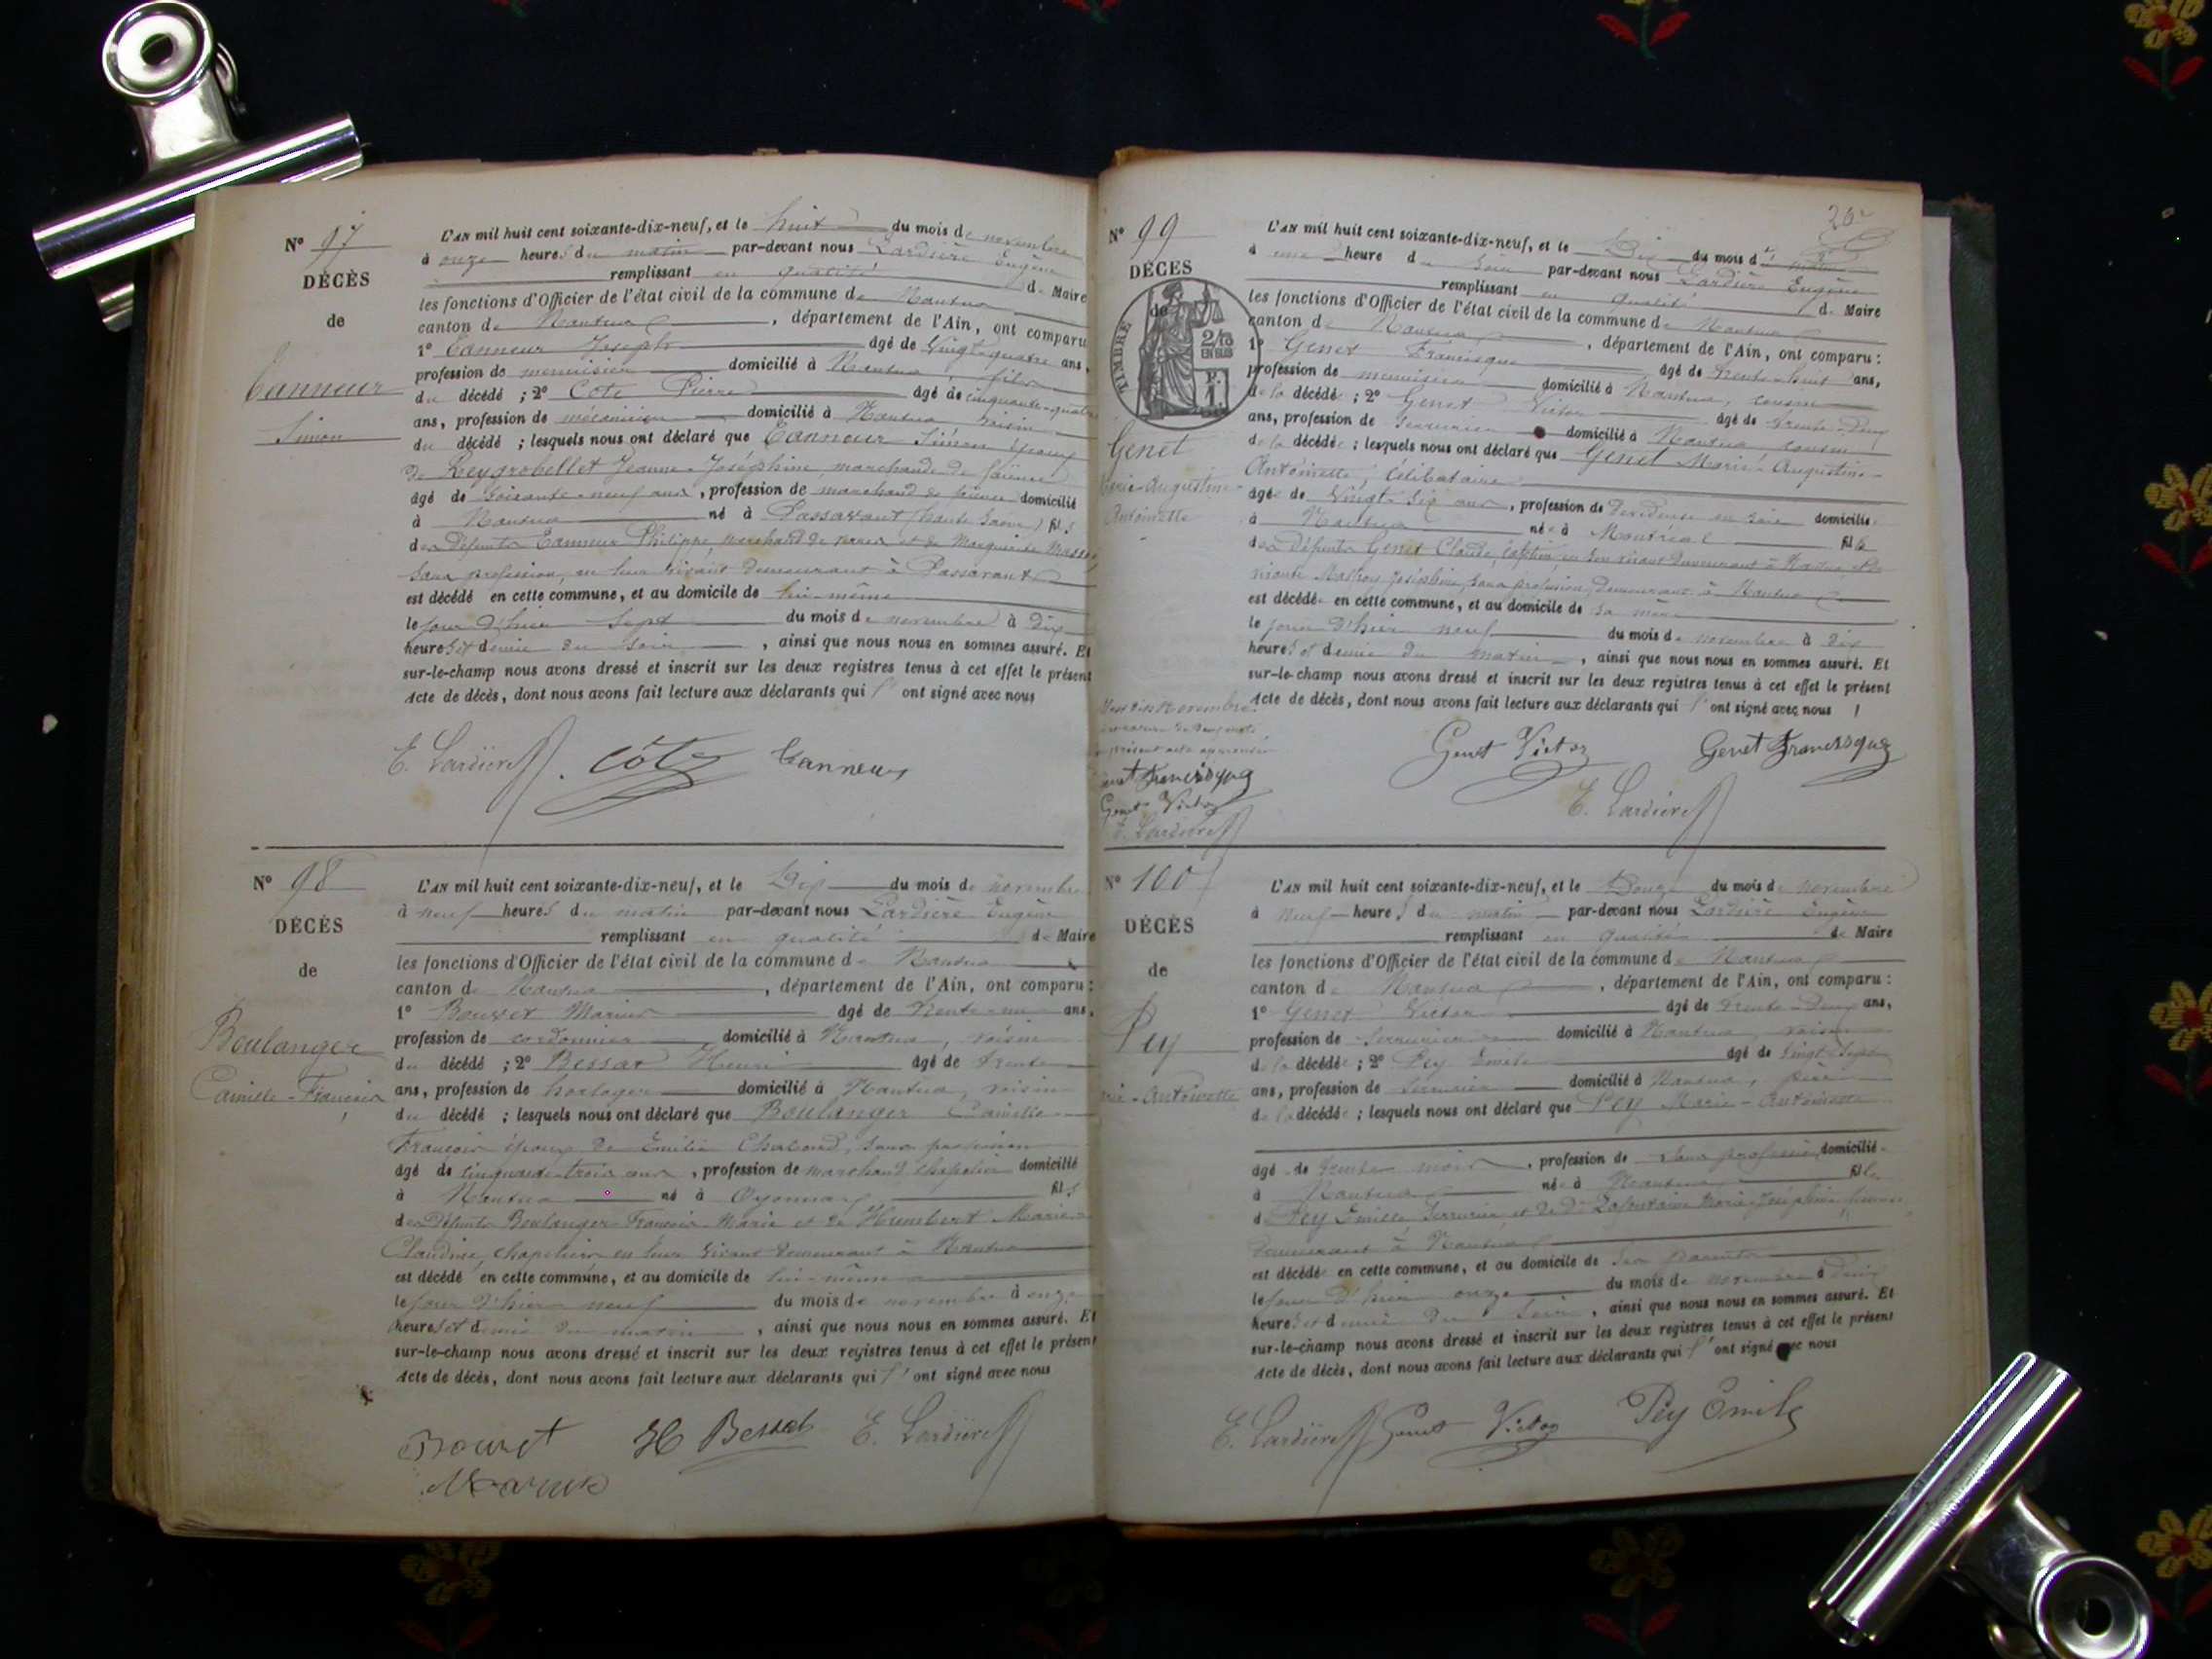 N° 97
DÉCÈS
de
Canneur
Simon
L'AN mil huit cent soixante-dix-neuf, et le huit du mois de novembre
à onze heures du matin par-devant nous Lardière Eugène
remplissant en qualité de Maire
les fonctions d'Officier de l'état civil de la commune de Nantua
canton de Nantua, département de l'Ain, ont comparu
1° Canneur Joseph âgé de vingt-quatre ans,
profession de menuisier domicilié à Nantua, fils
du décédé ; 2° Côte Pierre âgé de cinquante-quatre
ans, profession de mécanicien domicilié à Nantua voisin
du décédé ; lesquels nous ont déclaré que Canneur Simon époux
de Reygrobellet Jeanne-Joséphine marchande de faïence
âgé de soixante-neuf ans, profession de marchand de faïence domicilié
à Nantua né à Passavant (haute Saône) fils
des défunts Canneur Philippe, marchand de verres et de Marguerite
sans profession, en leur vivant demeurant à Passavant
est décédé en cette commune, et au domicile de lui-même
le jour d'hier sept du mois de novembre à dix
heures et demie du soir, ainsi que nous nous en sommes assuré. Et
sur-le-champ nous avons dressé et inscrit sur les deux registres tenus à cet effet le présent
Acte de décès, dont nous avons fait lecture aux déclarants qui l'ont signé avec nous
E. Lardière Côte Canneur
N° 98
DÉCÈS
de
Boulanger
Camille-François
L'AN mil huit cent soixante-dix-neuf, et le Dix du mois de novembre
à neuf heures du matin par-devant nous Lardière Eugène
remplissant en qualité de Maire
les fonctions d'Officier de l'état civil de la commune de Nantua
canton de Nantua, département de l'Ain, ont comparu :
1° Bouvet Marius âgé de trente-un ans,
profession de cordonnier domicilié à Nantua, voisin
du décédé ; 2° Bessat Henri âgé de trente
ans, profession de horloger domicilié à Nantua, voisin
du décédé ; lesquels nous ont déclaré que Boulanger Camille
François époux de Emilie Chaboud, sans profession
âgé de cinquante-trois ans, profession de marchand chapelier domicilié
à Nantua né à Oyonnax, fils
des défunts Boulanger François Marie et de Humbert Marie
Claudine, chapeliers en leur vivant demeurant à Nantua
est décédé en cette commune, et au domicile de lui-même
le jour d'hier neuf du mois de novembre à onze
heures et demie du matin, ainsi que nous nous en sommes assuré. Et
sur-le-champ nous avons dressé et inscrit sur les deux registres tenus à cet effet le présent
Acte de décès, dont nous avons fait lecture aux déclarants qui l'ont signé avec nous
Bouvet H Bessat E. Lardière
Marius
N° 99
DÉCES
de
TIMBRE
2/10
EN SUS
Genet
Marie-Augustine
Antoinette
L'AN mil huit cent soixante-dix-neuf, et le Dix du mois de
à une heure du soir par-devant nous Lardière Eugène
remplissant en qualité de Maire
les fonctions d'Officier de l'état civil de la commune de Nantua
canton de Nantua, département de l'Ain, ont comparu :
1° Genet Francisque âgé de trente-huit ans,
profession de menuisier domicilié à Nantua, cousin
de la décédé ; 2° Genet Victor âgé de trente-deux
ans, profession de serrurier domicilié à Nantua cousin
de la décédée ; lesquels nous ont déclaré que Genet Marie-Augustine-
Antoinette, célibataire
âgée de vingt-six ans, profession de dévideuse en soie domiciliée
à Nantua née à Montréal fille
des défunts Genet Claude, en son vivant demeurant à Nantua, et de
vivante Joséphine, sans profession, demeurant à Nantua
est décédée en cette commune, et au domicile de sa mère
le jour d'hier neuf du mois de novembre à dix
heures et demie du matin, ainsi que nous nous en sommes assuré. Et
sur-le-champ nous avons dressé et inscrit sur les deux registres tenus à cet effet le présent
Acte de décès, dont nous avons fait lecture aux déclarants qui l'ont signé avec nous
novembre
présent acte
Genet Francisque
Genet Victor
E. Lardière
Genet Victor Genet Francisque
E. Lardière
N° 100
DÉCÈS
de
Pey
Marie-Antoinette
L'AN mil huit cent soixante-dix-neuf, et le Douze du mois de novembre
à neuf heures du matin par-devant nous Lardière Eugène
remplissant en qualité de Maire
les fonctions d'Officier de l'état civil de la commune de Nantua
canton de Nantua, département de l'Ain, ont comparu :
1° Genet Victor âgé de trente-deux ans,
profession de serrurier domicilié à Nantua, voisin
de la décédée ; 2° Pey Emile âgé de vingt-sept
ans, profession de serrurier domicilié à Nantua, père
de la décédée ; lesquels nous ont déclaré que Pey Marie-Antoinette
âgée de mois, profession de sans profession domiciliée
à Nantua née à Nantua fille
de Pey Emile serrurier et de Lafontaine Marie-Joséphine
demeurant à Nantua
est décédée en cette commune, et au domicile de ses parents
le jour d'hier onze du mois de novembre à
heures et demie du soir, ainsi que nous nous en sommes assuré. Et
sur-le-champ nous avons dressé et inscrit sur les deux registres tenus à cet effet le présent
Acte de décès, dont nous avons fait lecture aux déclarants qui l'ont signé avec nous
E. Lardière Genet Victor Pey Emile